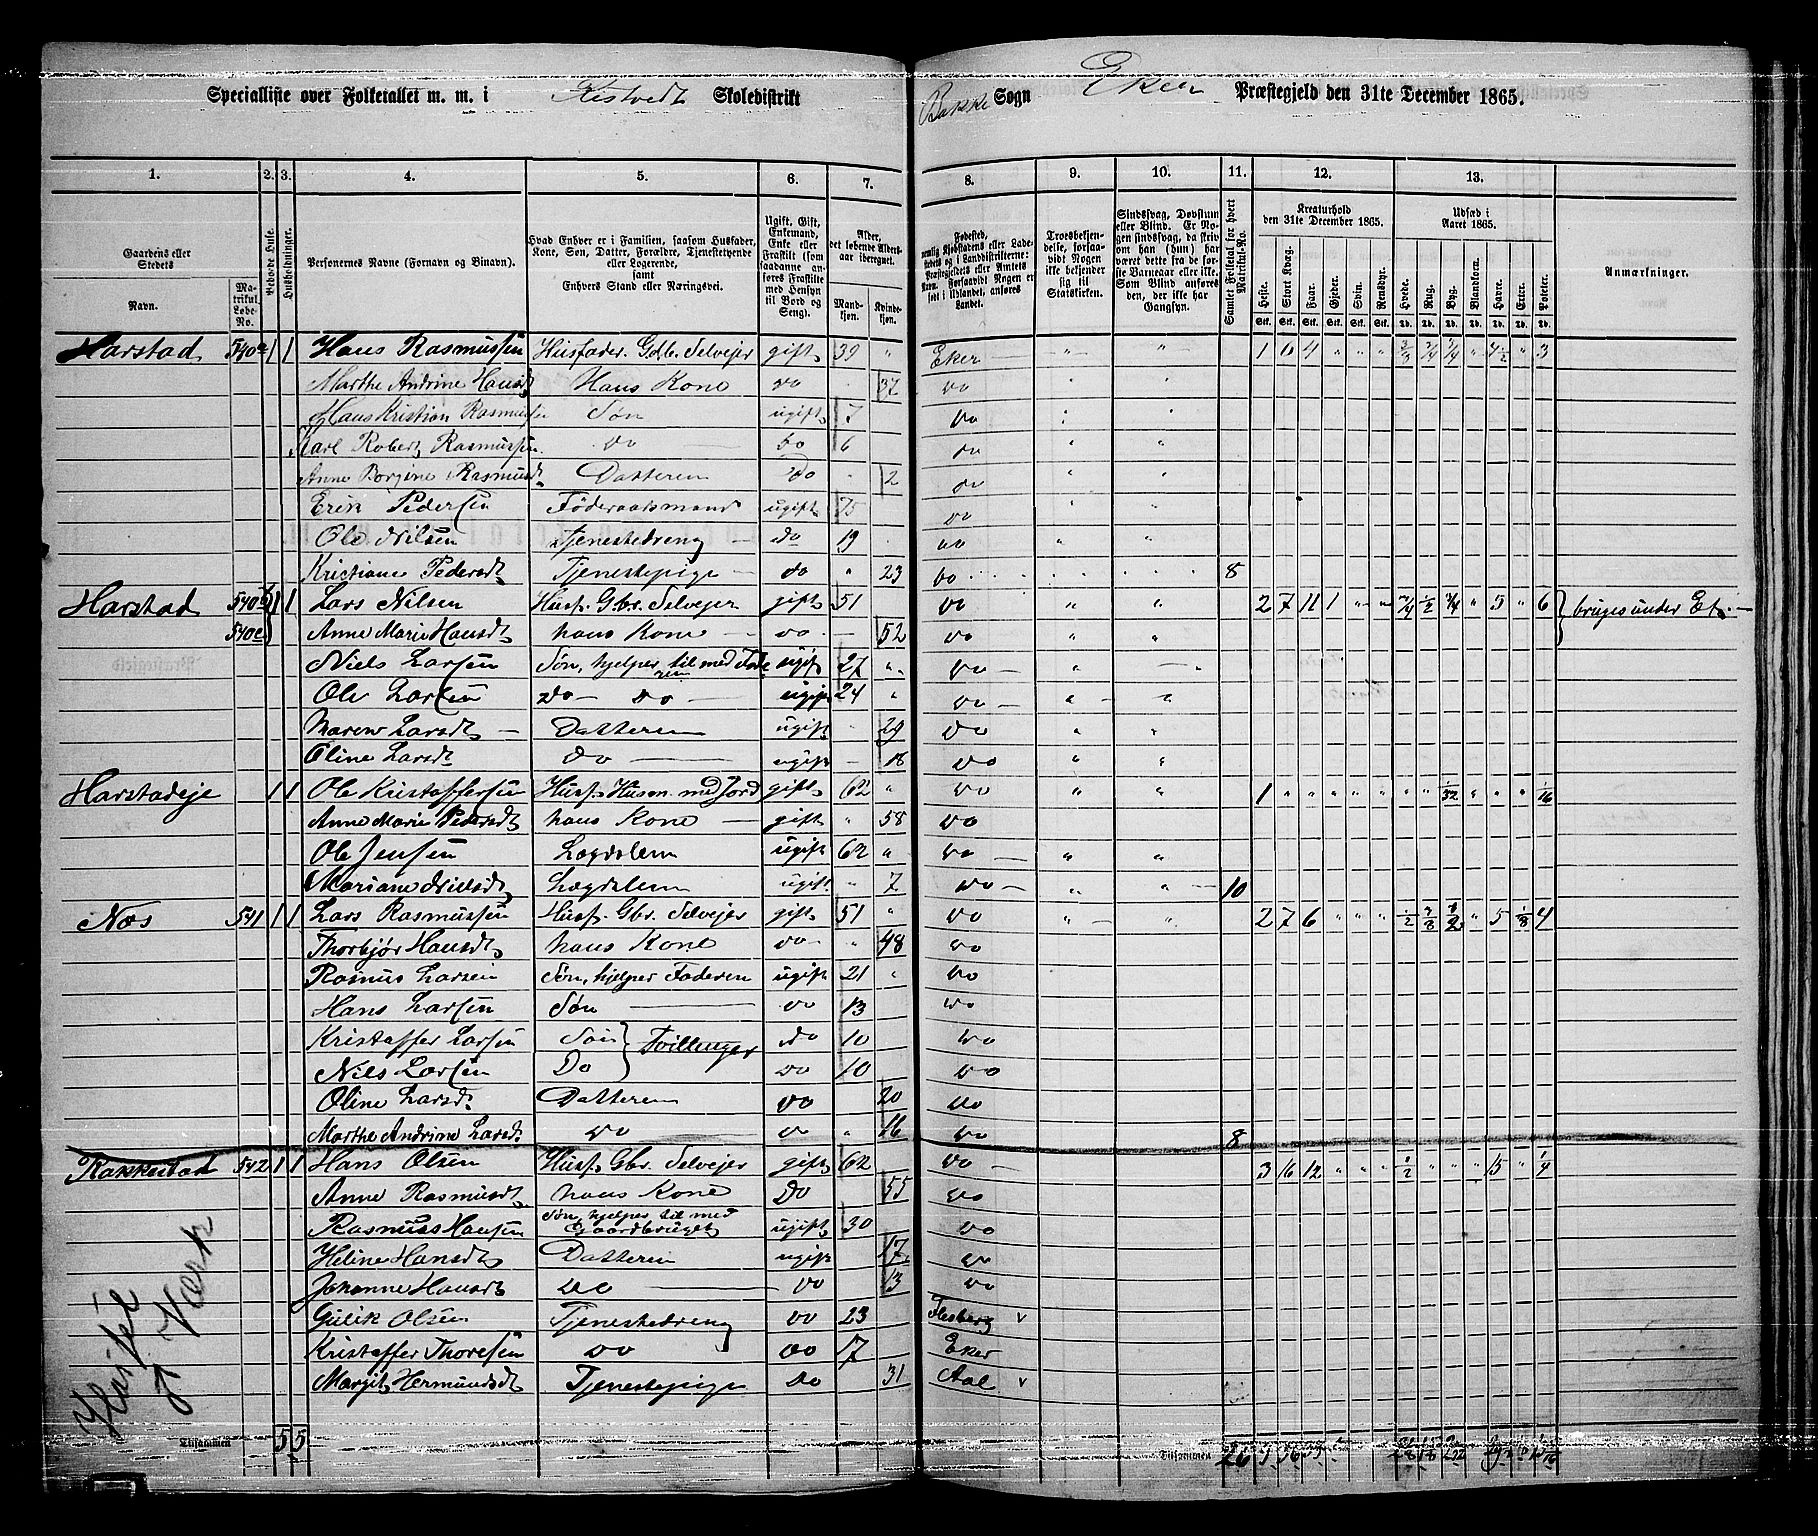 Specialliste over Folketallet m. m. i Skoledistrikt Bakke Sogn Eker Præstegjeld den 31te December 1865.
1. 2. 3. 4. 5. 6. 7. 8. 9. 10. 11. 12. 13.
Gaardens eller Stedets Navn. Matrikul. Løbe-No. Beboede Huse. Husholdninger. Personernes Navne (Fornavn og Binavn). Hvad Enhver er i Familien, saasom Husfader, Kone, Søn, Datter, Forældre, Tjenestetyende eller Logerende, samt Enhvers Stand eller Næringsvei. Ugift, Gift, Enkemand, Enke eller Fraskilt (som saadanne anføres Fraskilte med Hensyn til Bord og Seng). Alder, det løbende Aldersaar iberegnet. Mandkjøn. Kvindekjøn. Fødested, Troesbekjendelse, forsaavidt Nogen ikke bekjender sig til Statskirken. Sindssvag, Døvstum eller Blind. Samlet Folketal for hvert Matrikul-No. Kreaturhold den 31te December 1865. Heste. Stort Kvæg. Faar. Gjeder. Svin. Rensdyr. Udsæd i Aaret 1865. Hvede. Rug. Byg. Blandkorn. Havre. Erter. Poteter. Anmærkninger.
Harstad 540a 1 1 Hans Rasmussen Husfader. Gdb. Selveier gift 39 " Eker 1 6 4 " " " 4 1/2 " 3
Marthe Andrine Hansdt Hans Kone do 37 do
Hans Kristian Rasmussen Søn ugift 7 do
Karl Robert Rasmussen do do 6 do
Anne Borgine Rasmusdt Datteren do 2 do
Erik Pedersen Føderaadsmand ugift 75 do
Ole Nilsen Tjenestedreng do 19 do
Kristiane Pedersdt Tjenestepige do " 23 do 8
Harstad 540b 1 1 Lars Nilsen Husf. Gbr. Selveier gift 51 do 2 7 11 1 " " 1/2 3/4 " 5 " 6 bruges under Et.
540c Anne Marie Hansdt hans Kone do 52 do
Niels Larsen Søn, hjelper til med Faderen ugift 27 " do
Ole Larsen do do ugift 24 " do
Maren Larsdt Datteren ugift 29 do
Oline Larsdt do ugift 18 do
Harstadeje 1 1 Ole Kristaffersen Husf. Husm. med Jord gift 62 " do 1 " " " " " " " 1/32 " " " 1/16
Anne Marie Pedersdt hans Kone gift " 58 do
Ole Jensen Lægdslem ugift 62 " do
Mariane Nielsdt Lægdslem ugift " 7 do 10
Næs 541 1 1 Lars Rasmussen Husf. Gbr. Selveier gift 51 " do 2 7 6 " " " 1/2 " 5 1/8 4
Thorbjør Hansdt hans Kone do " 48 do
Rasmus Larsen Søn, hjelper Faderen ugift 21 " do
Hans Larsen Søn do 13 do
Kristaffer Larsen Søn } Tvillinger do 10 do
Nils Larsen Do do 10 do
Oline Larsdt Datteren do 20 do
Marthe Andrine Larsdt do do " 16 do 8
Rakkestad 542 1 1 Hans Olsen Husf. Gbr. Selveier gift 62 do 3 16 12 " " " 1/2 " " " 15 " 1/4
Anne Rasmusdt hans Kone Do 55 do
Rasmus Hansen Søn, hjelper til med Gaardbruget ugift 30 do
Heline Hansdt Datteren ugift 17 do
Johanne Hansdt do do 13 do
Gulik Olsen Tjenestedreng do 23 Flesberg v
Kristaffer Thoresen do do 17 Eker
Margit Hermundsdt Tjenestepige do 31 Aal v
Tilsammen 5 5 Tilsammen 26 9 36 33